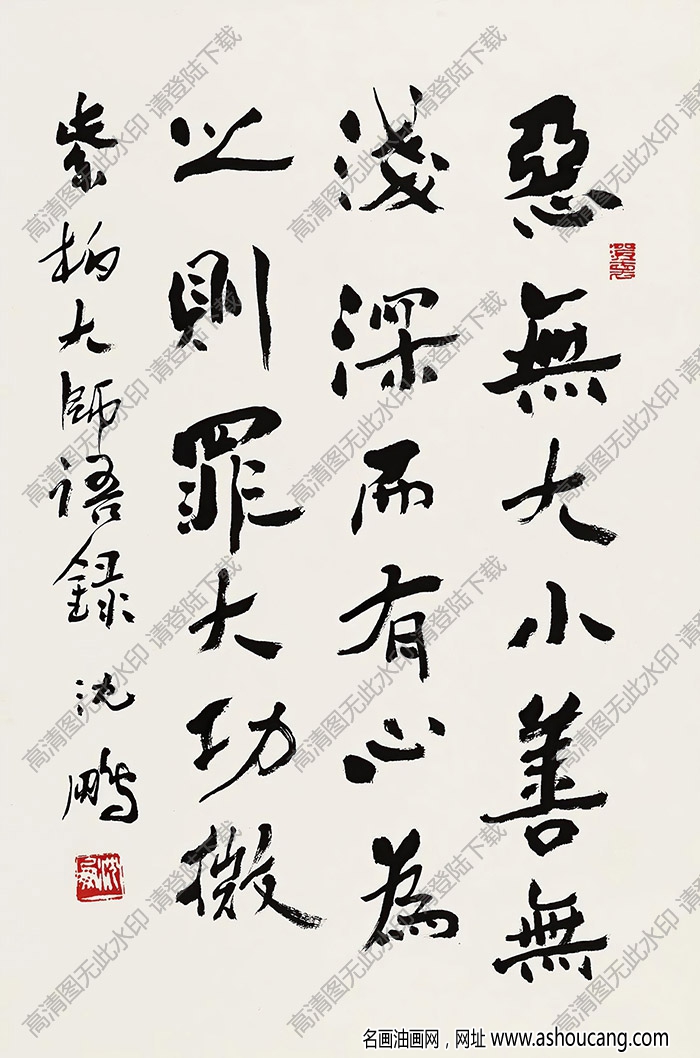 惡無大小善無
淺深而有心為
之則罪大功微
紫柏大師語錄 沈鵬
沈鵬
高清图无此水印 请登陆下载
名画油画网，网址 www.ashoucang.com